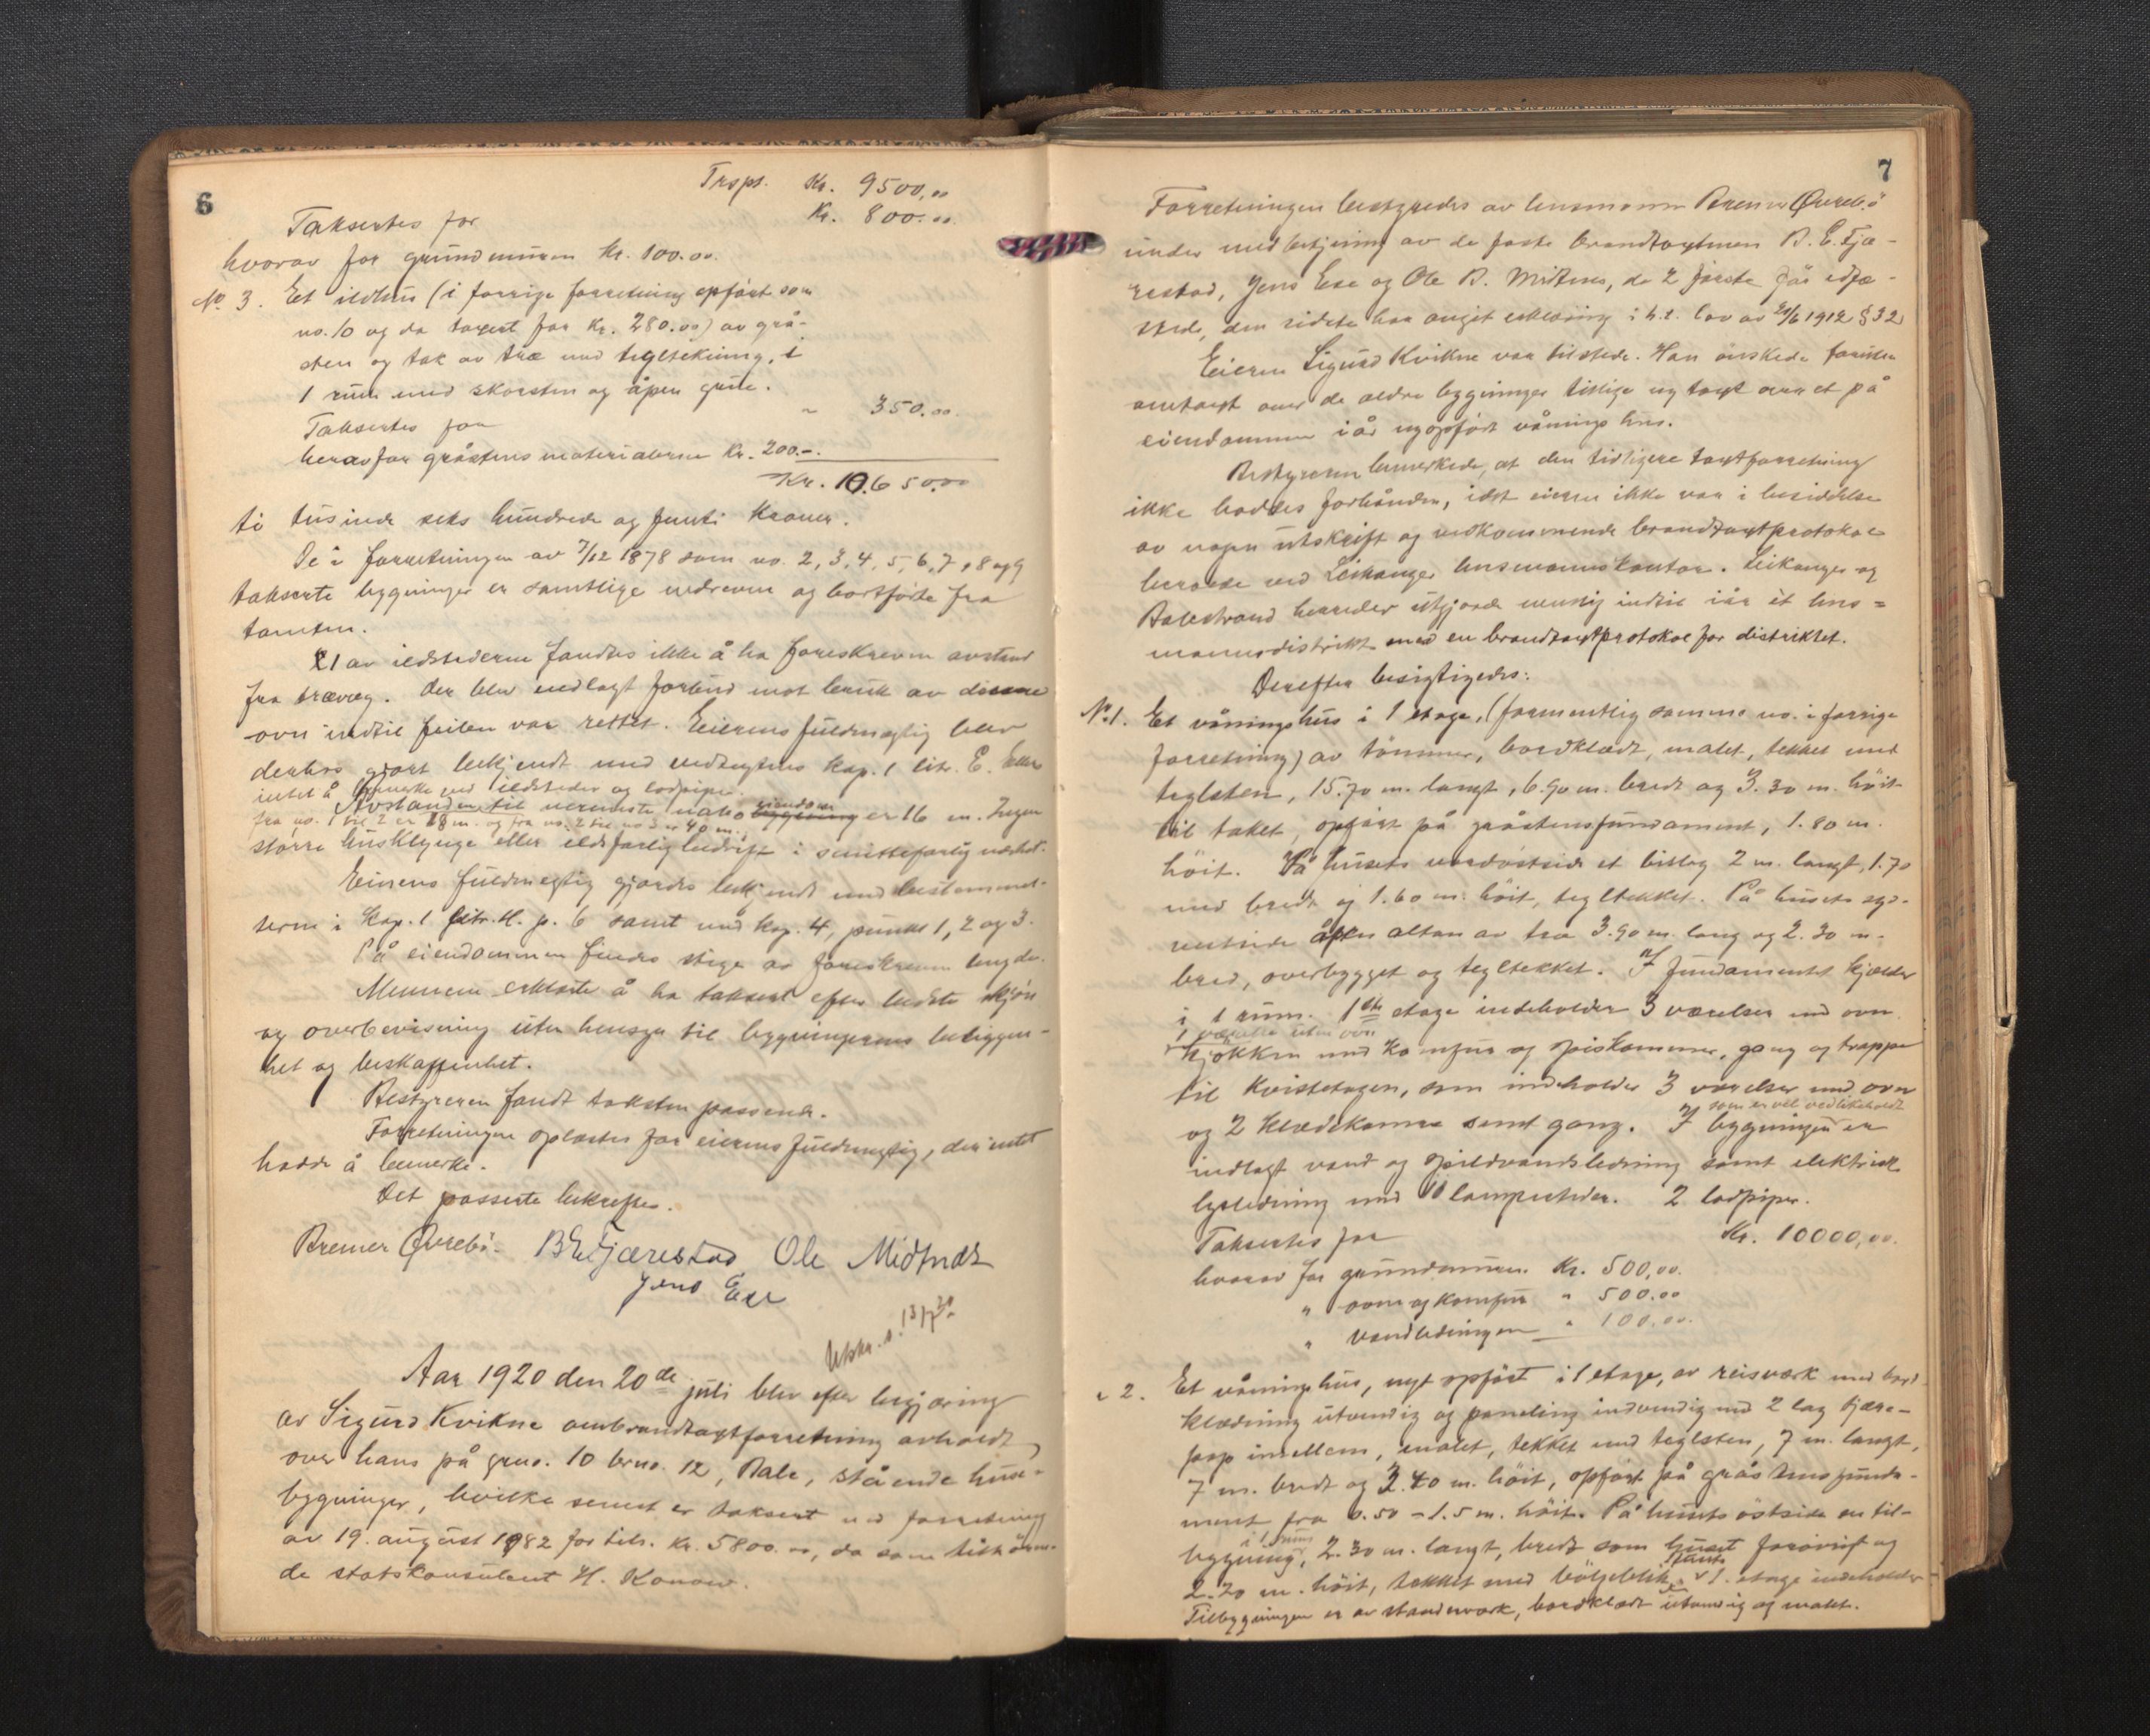 6
Trspt. Kr. 9500,00
Taksertes for Kr. 800.00
hvorav for grundmuren Kr. 100.00.
No. 3. Et ildhus (i forrige forretning opført som
no. 10 og da taxert for Kr. 280.00) av grå-
sten og tak av træ med tegltekning, i
1 rum med skorsten og åpen grue.
Taksertes for " 350.00
herav for gråstensmaterialerne Kr. 200.-.
Kr. 10.650.00
ti tusinde seks hundrede og femti kroner.
De i forretningen av 7/12 1878 som no. 2, 3, 4, 5, 6, 7, 8 og 9
takserte bygninger er samtlige nedrevne og bortførte fra
tomten.
1 av ildstederne fandtes ikke å ha foreskreven avstand
fra trævæg. Der blev nedlagt forbud mot bruk av denne
ovn indtil feilen var rettet. Eierens fuldmægtig blev
derhos gjort bekjendt med vedtægtens kap. 1 litr. E. Ellers
intet å bemerke ved ildsteder og lodpiper.
Avstanden til nærmeste nabo eiendom er 16 m. Ingen
fra no. 1 til 2 er 18 m. og fra no. 2 til no 3 er 40 m.
større husklynge eller ildsfarlig bedrift i smittefarlig nærhet.
Eierens fuldmægtig gjordes bekjendt med bestemmel-
serne i kap. 1 litr. H. p. 6 samt med kap. 4, punkt 1, 2 og 3.
På eiendommen findes stige av foreskreven lengde.
Mennene erklærte å ha taksert efter bedste skjøn
og overbevisning uten hensyn til bygningernes beliggen-
het og beskaffenhet.
Bestyreren fandt taksten passende.
Forretningen oplæstes for eierens fuldmægtig, der intet
hadde å bemerke.
Det passerte bekreftes.
Bremer Øvrebö. B E Fjærestad Ole Midtnæs
Jens Ese
Utskr. s. 13/9 20
Aar 1920 den 20de juli blev efter begjæring
av Sigurd Kvikne ombrandtaxtforretning avholdt
over hans på grno. 10 brno. 12, Bale, stående hus-
bygninger, hvilke senest er taksert ved forretning
av 19. august 1882 for tils. Kr. 5800.00, da som tilhören-
de statskonsulent H. Konow.
7
Forretningen bestyredes av lensmann Bremer Øvrebö
under medbetjening av de faste brandtaxtmen B. E. Fjæ-
restad, Jens Ese og Ole B. Midtnes, de 2 første før edfæ-
stede, den sidste har avgit erklæring i h.t. lov av 21/6 1912 § 32
Eieren Sigurd Kvikne var tilstede. Han ønskede foruten
omtaxt over de ældre bygninger tillige ny taxt over et på
eiendommen iår nyopført våningshus.
Bestyreren bemerkede, at den tidligere taxtforretning
ikke hadtes forhånden, idet eieren ikke var i besiddelse
av nogen utskrift og vedkommende brandtaxtprotokol
beroede ved Leikanger lensmannskontor. Leikanger og
Balestrand herreder utgjorde nemlig indtil iår èt lens=
mannsdistrikt med en brandtaxtprotokol for distriktet.
Derefter besigtigedes:
No. 1. Et våningshus i 1 etage, (formentlig samme no. i forrige
forretning) av tömmer, bordklædt, malet, tekket med
teglsten, 15.70 m. langt, 6.90 m. bredt og 3.30 m. höit
til taket, opført på gråstensfundament, 1.80 m.
höit. På husets nordøstside et bislag 2 m. langt, 1.70
m. bredt og 1.60 m. höit, tegltekket. På husets syd-
vestside åpen altan av træ 3.90 m. lang og 2.30 m.
bred, overbygget og tegltekket. I fundamentet kjælder
i 1 rum. 1ste etage indeholder 3 værelser med ovn
1 værelse uten ovn
kjøkken med komfur og spiskammer, gang og trappe
til kvistetagen, som indeholder 3 værelser med ovn
og 2 klædekamre samt gang. I bygningen er
som er vel vedlikeholdt
indlagt vand og spildvandsledning samt elektrisk
lysledning med 10 lampesteder. 2 lodpiper.
Taksertes for Kr. 10000,00.
hvorav for grundmuren Kr. 500,00.
" ovne og komfur " 500.00
" vandledningen " 100.00.
" 2. Et våningshus, nyt opført i 1 etage, av reisværk med bord-
klædning utvendig og paneling indvendig med 2 lag tjære-
pap imellem, malet, tekket med teglsten, 7 m. langt,
7 m. bredt og 3.40 m. höit, opført på gråstensfunda-
ment fra 0.50 - 1.5 m. höit. På husets östside en til-
bygning, i 1 rum, 2.30 m. langt, bredt som huset forøvrigt og
2.20 m. höit, tekket med bölgeblik. Husets 1. etage indeholder
Tilbygningen er av stavneværk, bordklædt utvendig og malet.